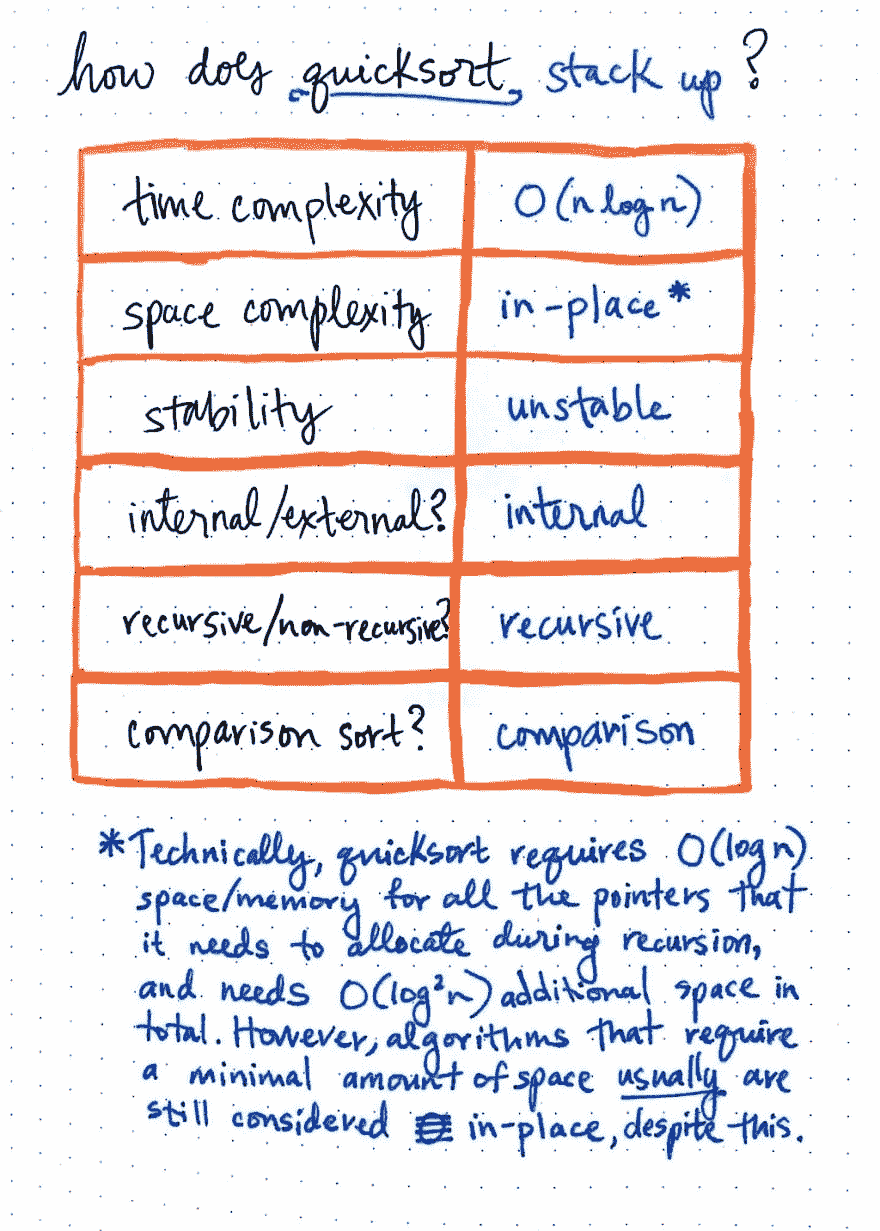 how does quicksort stack up?
time complexity O(n log n)
space complexity in-place*
stability unstable
internal/external? internal
recursive/non-recursive? recursive
comparison sort? comparison
*Technically, quicksort requires O(log n)
space/memory for all the pointers that
it needs to allocate during recursion,
and needs O(log²n) additional space in
total. However, algorithms that require
a minimal amount of space usually are
still considered in-place, despite this.